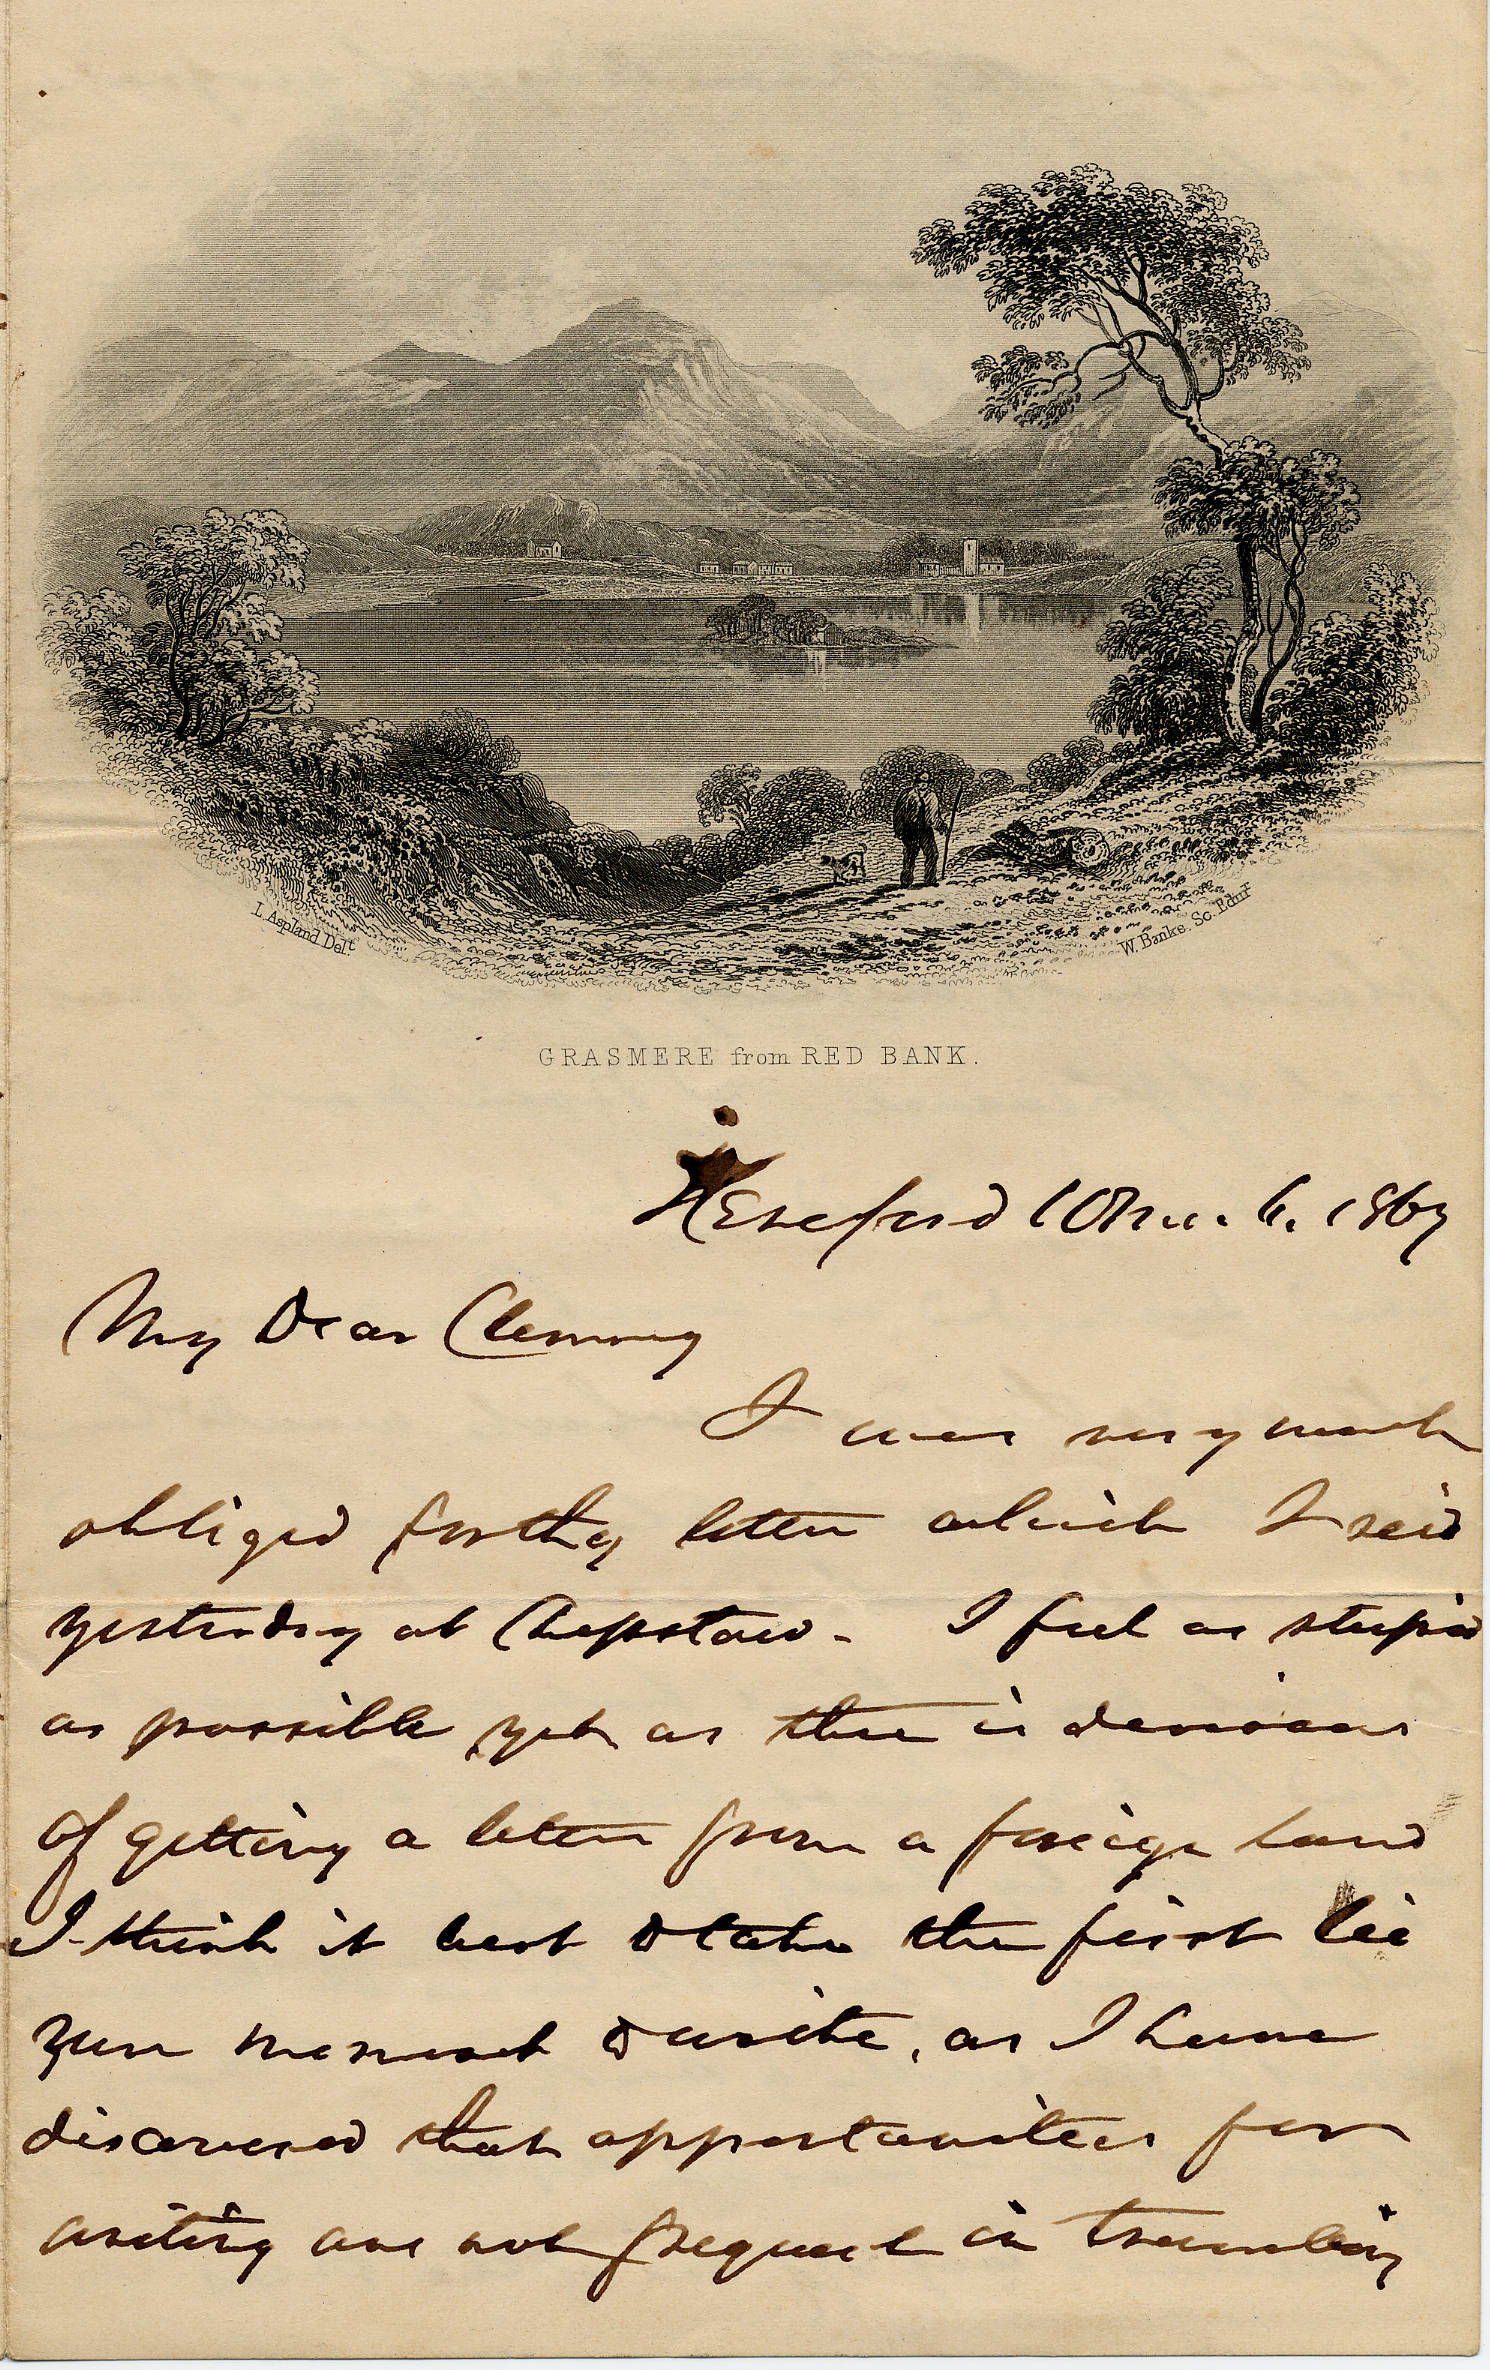 L. Aspland Delt.
W. Banke. Sc. Edinr
GRASMERE from RED BANK.
Hereford 10 Mo. 6. 1867
My Dear Clemmy
I was very much
obliged for thy letter which I recd
yesterday at Chepstow. I feel as stupid
as possible yet as thee is desirous
of getting a letter from a foreign land
I think it best to take the first lei
zure moment to write, as I have
discovered that opportunities for
writing are not frequent in traveling